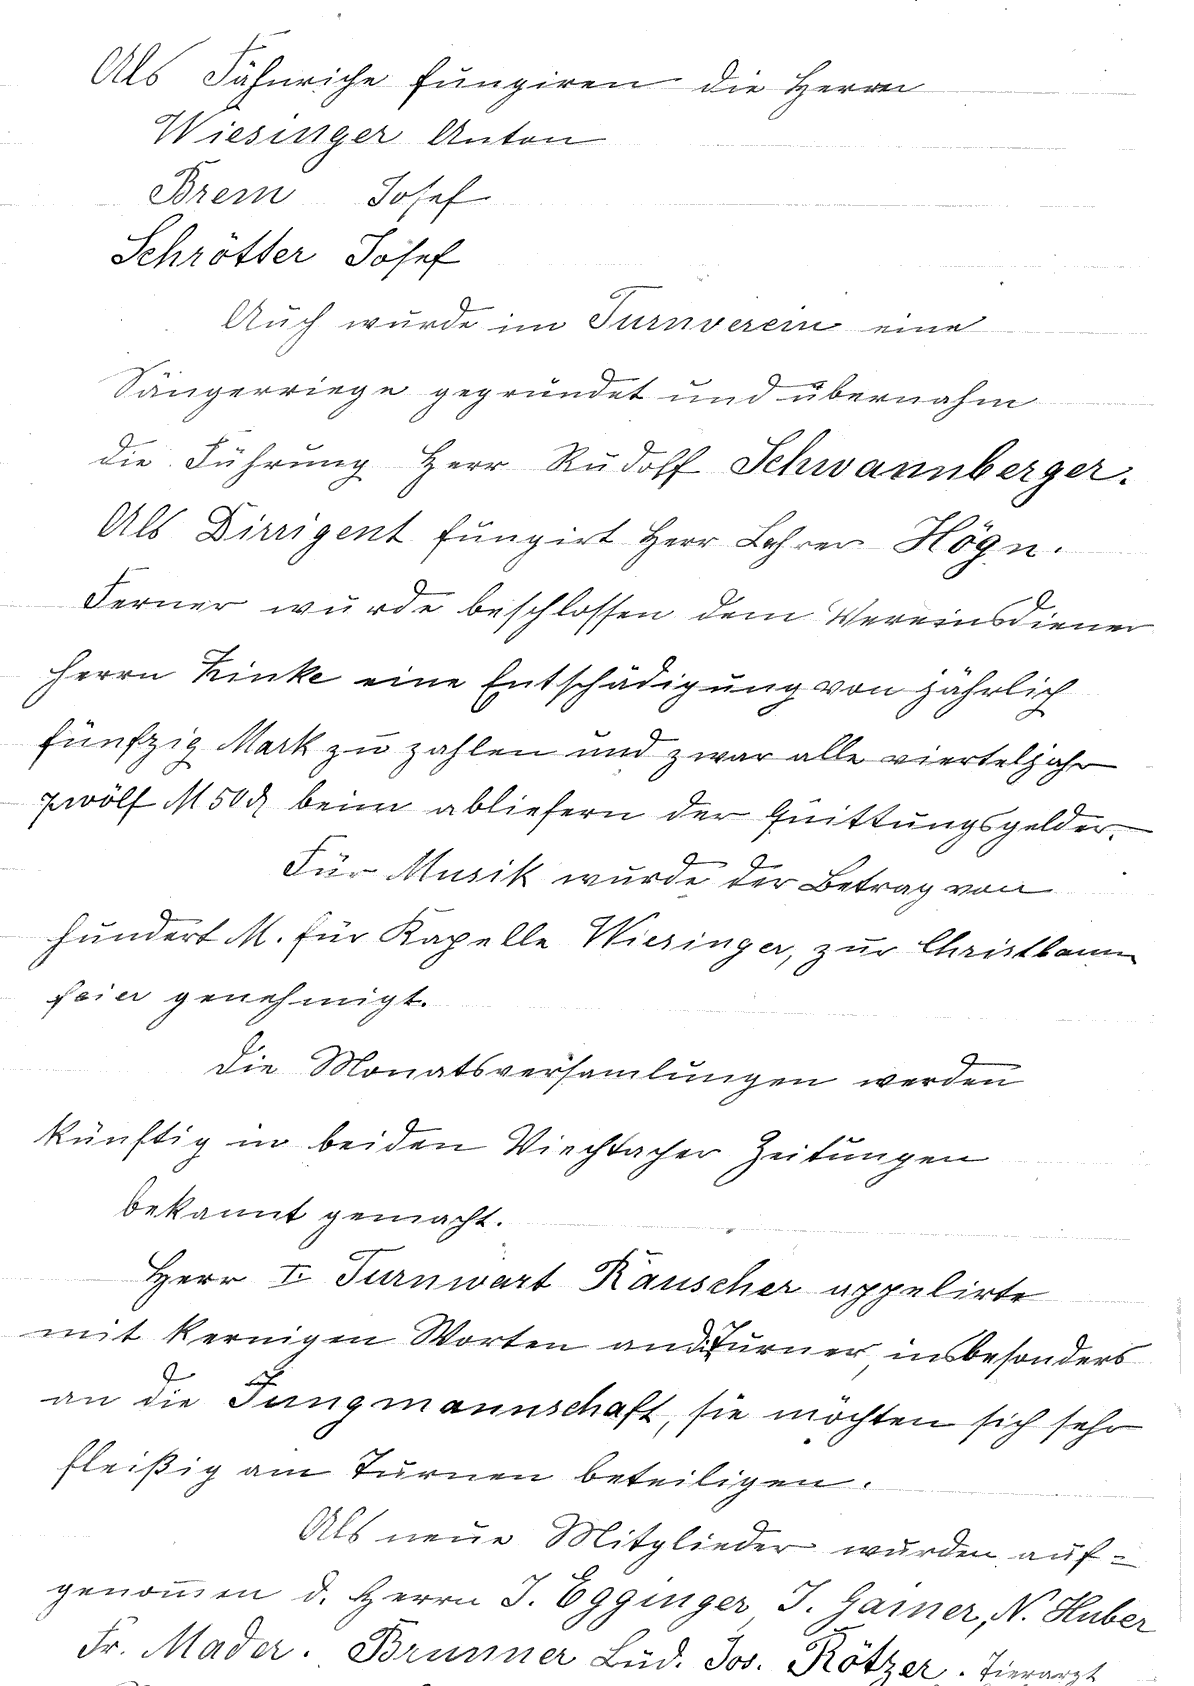 Als Fähnriche fungiren die Herrn
Wiesinger Anton
Brem Josef
Schrötter Josef
Auch wurde im Turnverein eine
Sängerriege gegründet und übernahm
die Führung Herr Rudolf Schwannberger.
Als Dirrigent fungirt Herr Lehrer Högn.
Ferner wurde beschlossen dem Vereinsdiener
Herrn Zinke eine Entschädigung von jährlich
fünfzig Mark zu zahlen und zwar alle vierteljahr
zwölf M 50 ₰ beim abliefern der Quittungsgelder.
Für Musik wurde der Betrag von
hundert M. für Kapelle Wiesinger, zur Christbaum
feier genehmigt.
Die Monatsversamlungen werden
künftig in beiden Viechtacher Zeitungen
bekannt gemacht.
Herr I. Turnwart Rauscher appelirte
mit kernigen Worten an d. Turner, insbesonders
an die Jungmannschaft, sie möchten sich sehr
fleißig am Turnen beteiligen.
Als neue Mitglieder wurden auf-
genom̄en d. Herrn J. Egginger, J. Gainer, N. Huber
Fr. Mader. Brunner Lud. Jos. Rötzer. Tierarzt